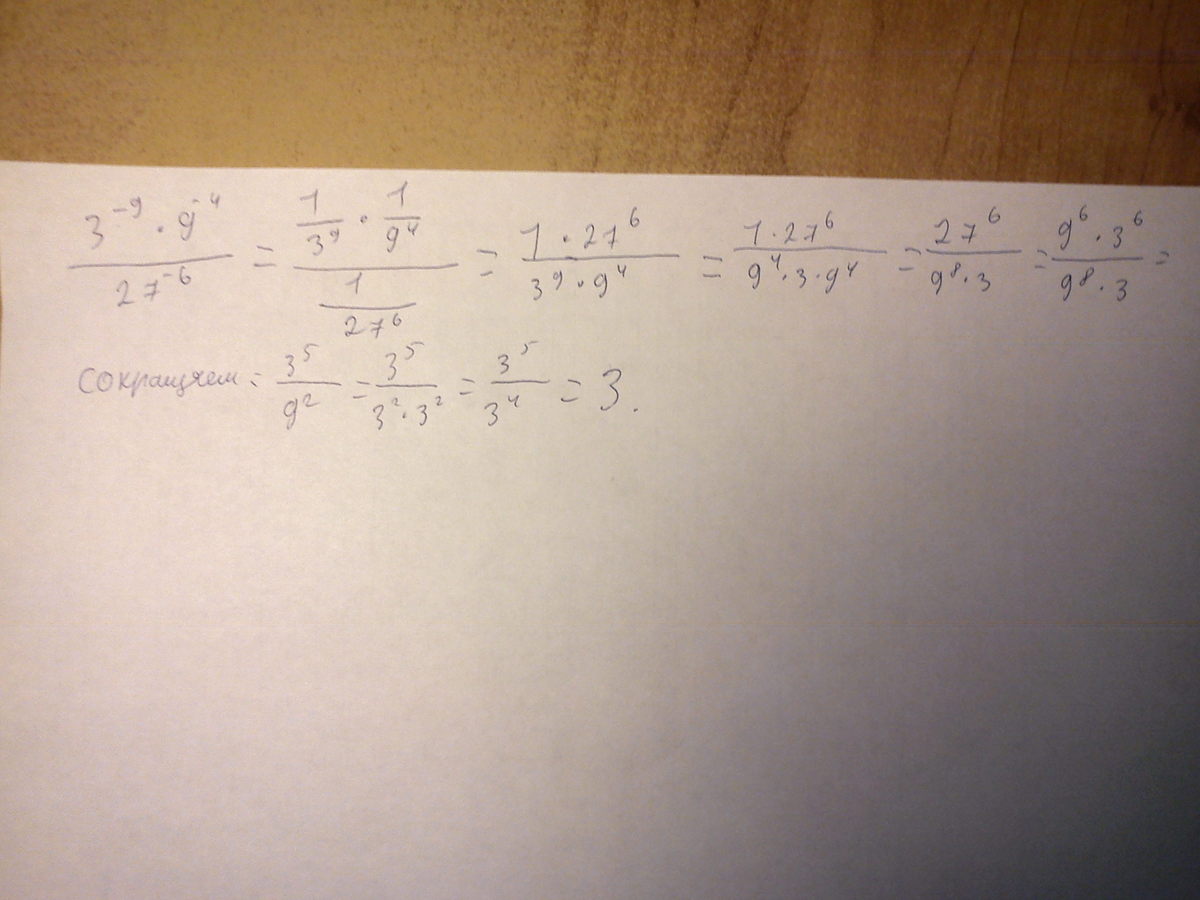 \frac{3^{-9} \cdot 9^{-4}}{27^{-6}} = \frac{\frac{1}{3^9} \cdot \frac{1}{9^4}}{\frac{1}{27^6}} = \frac{1 \cdot 27^6}{3^9 \cdot 9^4} = \frac{1 \cdot 27^6}{9^4 \cdot 3 \cdot 9^4} = \frac{27^6}{9^8 \cdot 3} = \frac{9^6 \cdot 3^6}{9^8 \cdot 3} =
Сокращяем = \frac{3^5}{9^2} = \frac{3^5}{3^2 \cdot 3^2} = \frac{3^5}{3^4} = 3.